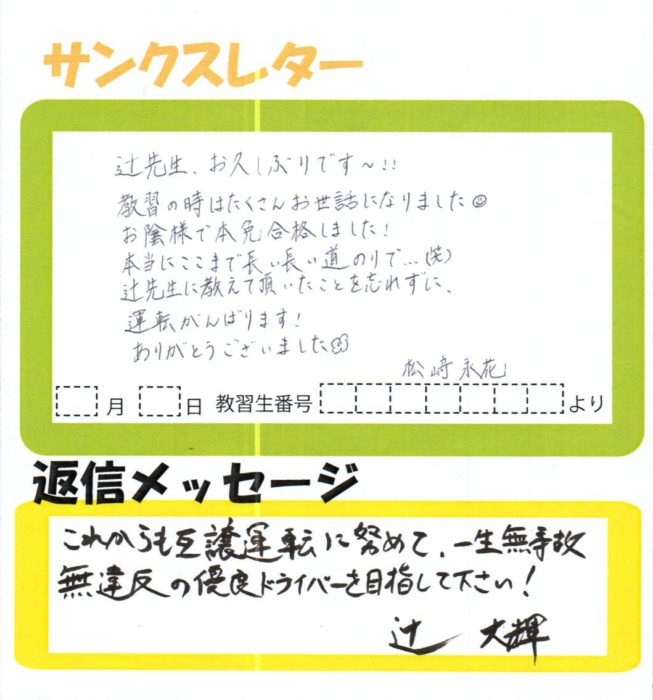 サンクスレター
辻先生、お久しぶりです〜!!
教習の時はたくさんお世話になりました☺
お陰様で本免合格しました!
本当にここまで長い長い道のりで…(笑)
辻先生に教えて頂いたことを忘れずに、
運転がんばります!
ありがとうございました☺
松﨑永花
月 日 教習生番号 より
返信メッセージ
これからも互譲運転に努めて、一生無事故
無違反の優良ドライバーを目指して下さい!
辻 大輝